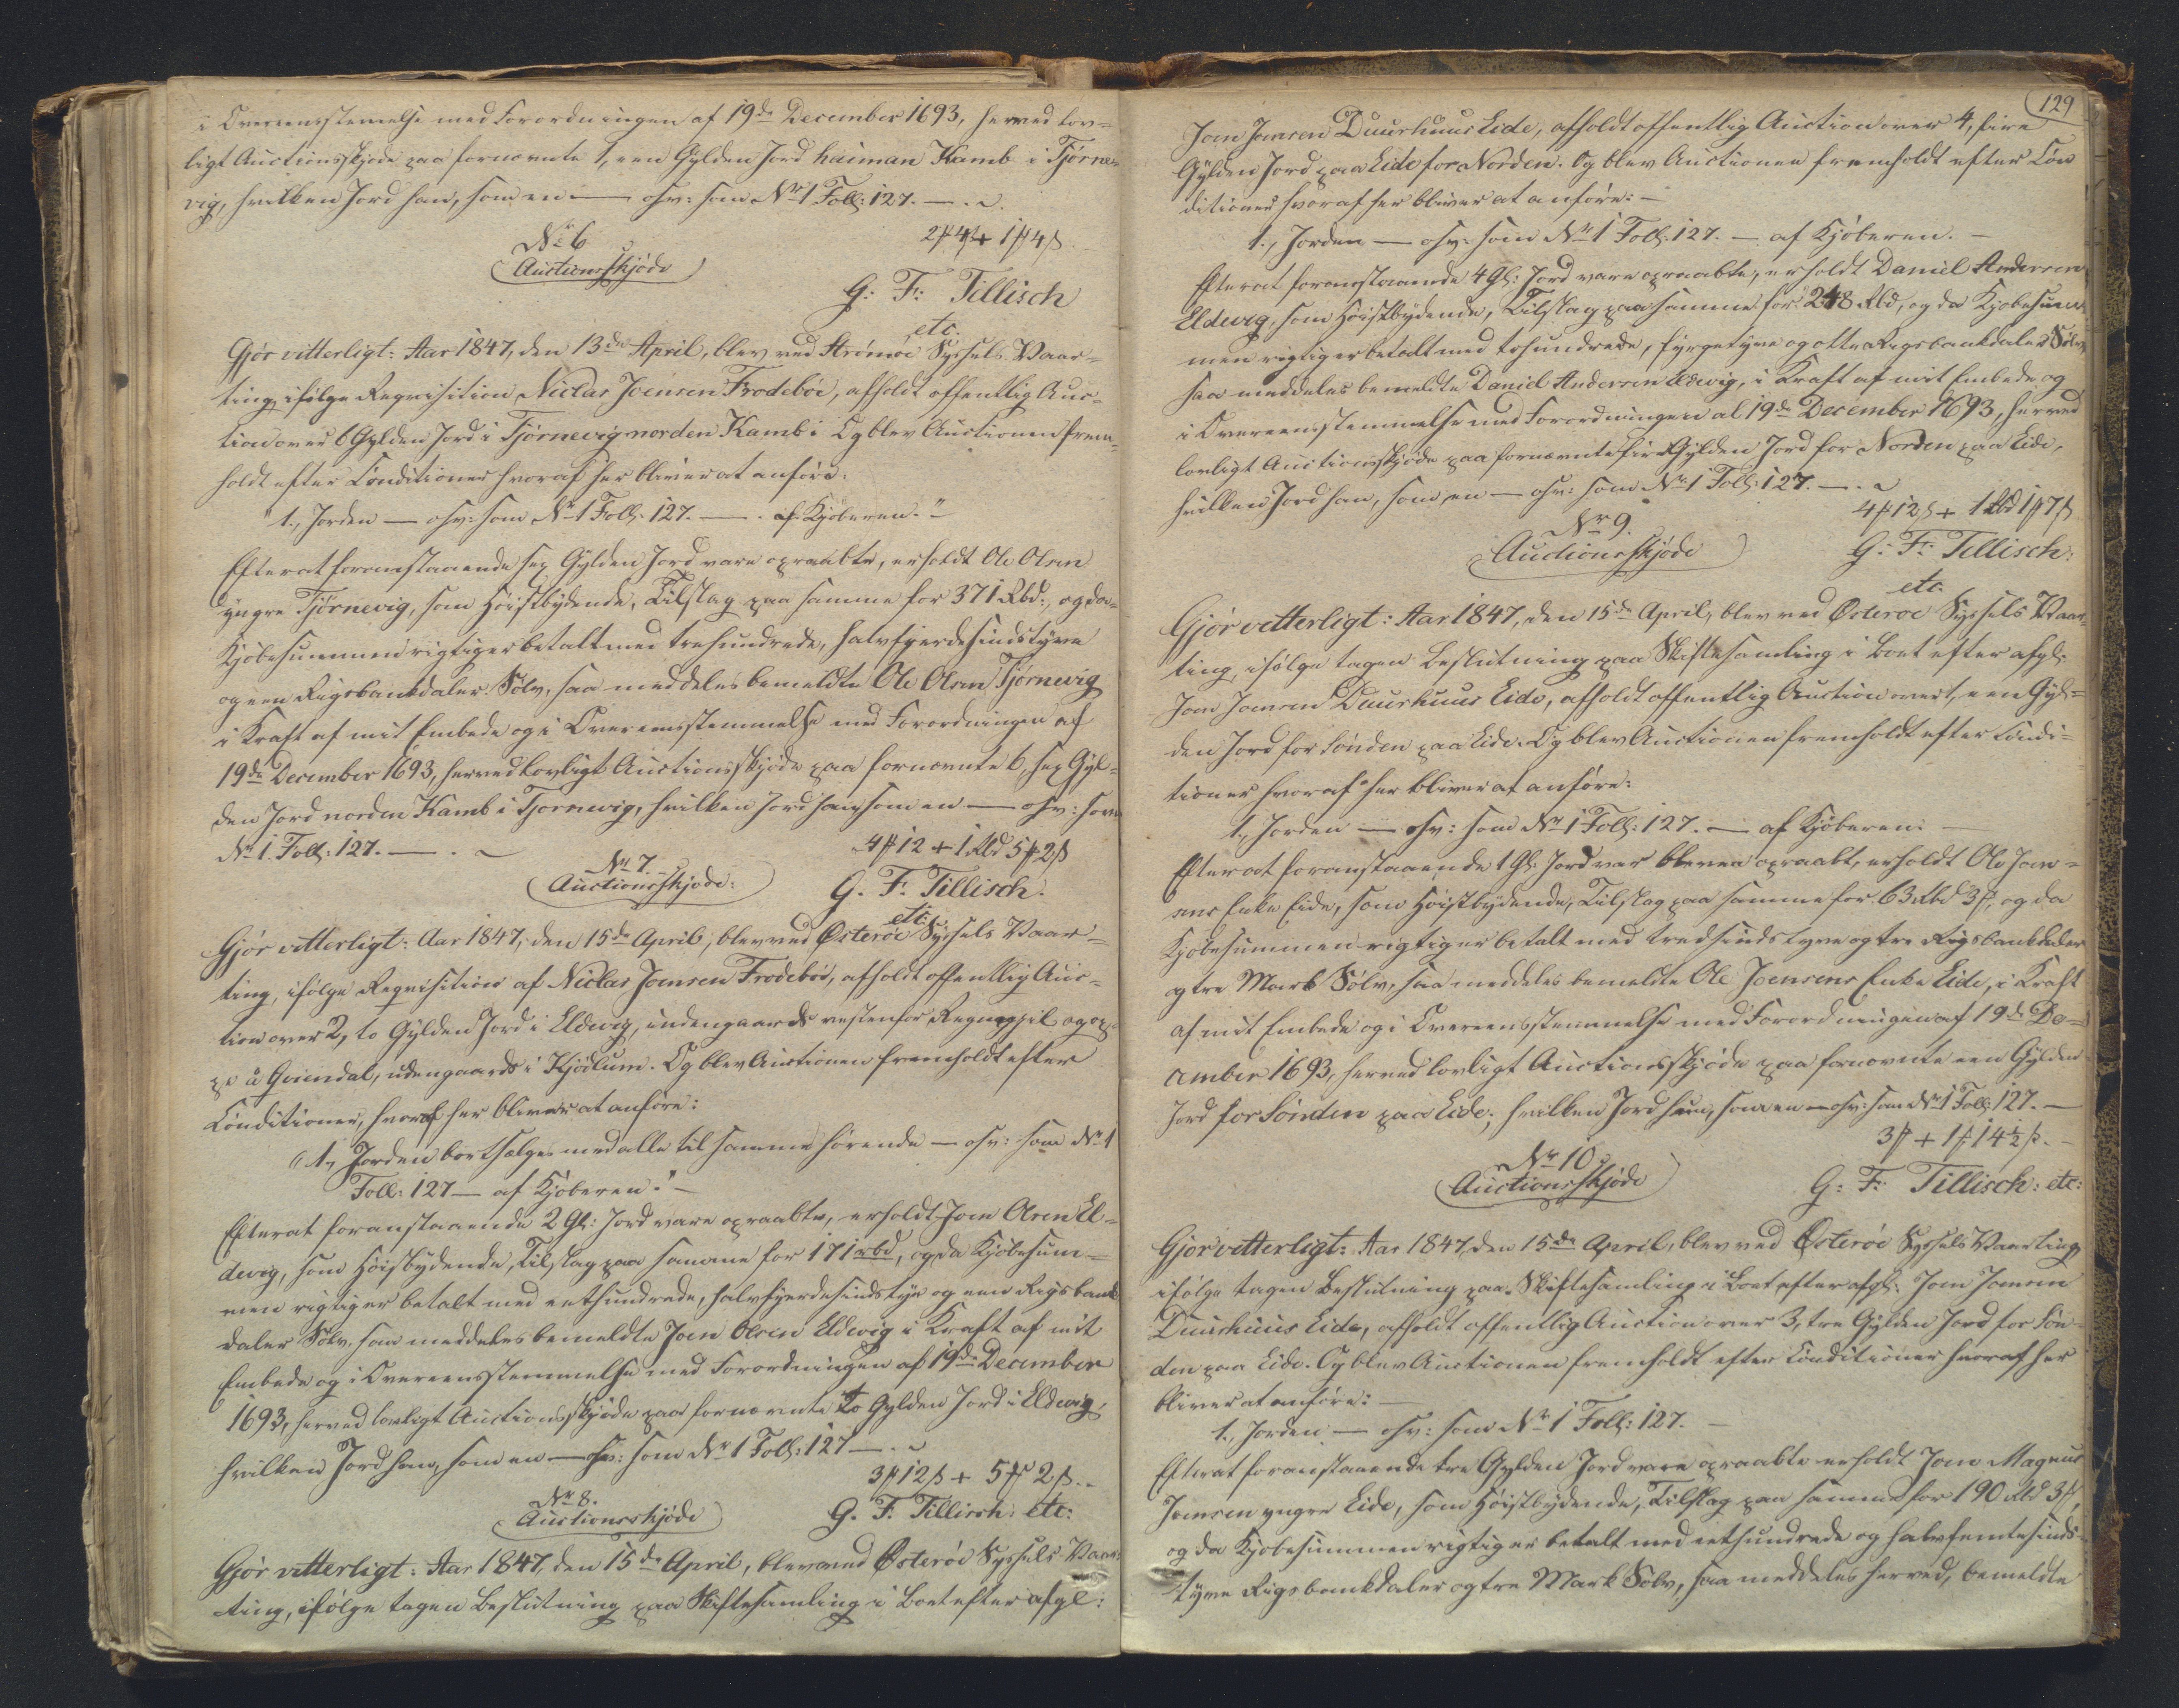 i Overeensstemmelse med Forordningen af 19de December 1693, herved lov=
ligt Auctionsskjøde paa fornævnte 1, een Gylden Jord haiman Kamb i Tjørne=
vig, hvilken Jord han, som en — osv: som Nr 1 Foll: 127. —
2 4 + 1 4 ß
Nr 6
Auctionsskjøde
G: F: Tillisch
etc.
Gjør vitterligt: Aar 1847, den 13de April, blev ved Strømøe Syssels Vaar=
ting, ifølge Reqvisition Niclas Joensen Frodebøe, afholdt offentlig Auc=
tion over 6 Gylden Jord i Tjørnevig norden Kamb i Og blev Auctionen frem=
holdt efter Conditioner hvoraf her bliver at anføre:
"1., Jorden — osv: som Nr 1 Foll: 127. — af Kjøberen."
Efterat foranstaaende sex Gylden Jord vare opraabte, erholdt Ole Olsen
yngre Tjørnevig, som Høistbydende, Tilslag paa samme for 371 Rbd:, og da
Kjøbesummen rigtig er betalt med trehundrede, halvfjerdesindstyve
og een Rigsbankdaler Sølv, saa meddeles bemeldte Ole Olsen Tjørnevig
i Kraft af mit Embede og i Overeensstemmelse med Forordningen af
19de December 1693, herved lovligt Auctionsskjøde paa fornævnte 6, sex Gyl=
den Jord norden Kamb i Tjørnevig, hvilken Jord han som en — osv: som
Nr 1. Foll: 127. —
4 12 + 1 Rbd 5 2 ß
Nr 7.
Auctionsskjøde:
G. F. Tillisch.
etc.
Gjør vitterligt: Aar 1847, den 15de April, blev ved Østerøe Syssels Vaar=
ting, ifølge Reqvisition af Niclas Joensen Frodebøe, afholdt offentlig Auc=
tion over 2, to Gylden Jord i Eldevig, indengaards vestenfor og op=
pe á Goiendal, udengaards i Kjødlum. Og blev Auctionen fremholdt efter
Conditioner, hvoraf her bliver at anføre:
"1., Jorden bortsælges med alle til samme hørende — osv: som Nr 1
Foll: 127 — af Kjøberen." —
Efterat foranstaaende 2 Gl: Jord vare opraabte, erholdt Joen Olsen El=
devig, som Høistbydende, Tilslag paa samme for 171 rbd, og da Kjøbesum=
men rigtig er betalt med eethundrede, halvfjerdesindstyve og een Rigsbank
daler Sølv, saa meddeles bemeldte Joen Olsen Eldevig i Kraft af mit
Embede og i Overeensstemmelse med Forordningen af 19de December
1693, herved lovligt Auctionsskjøde paa fornævnte to Gylden Jord i Eldevig,
hvilken Jord han, som en — osv: som Nr 1 Foll: 127 —
3 12 ß + 5 2 ß.
Nr 8.
Auctionsskjøde
G. F. Tillisch: etc:
Gjør vitterligt: Aar 1847, den 15de April, blev ved Østerøe Syssels Vaar=
ting, ifølge tagen Beslutning paa Skiftesamling i Boet efter afgl:
129
Joen Joensen Duurhuus Eide, afholdt offentlig Auction over 4, fire
Gylden Jord paa Eide for Norden. Og blev Auctionen fremholdt efter Con
ditioner hvoraf her bliver at anføre: —
1., Jorden — osv: som Nr 1 Foll: 127. — af Kjøberen. —
Efterat foranstaaende 4 Gl: Jord vare opraabte, erholdt Daniel Andersen
Eldevig, som Høistbydende, Tilslag paa samme for 248 Rbd, og da Kjøbesum
men rigtig er betalt med tohundrede, fyrgetyve og otte Rigsbankdaler Sølv
saa meddeles bemeldte Daniel Andersen Eldevig, i Kraft af mit Embede og
i Overeensstemmelse med Forordningen al 19de December 1693, herved
lovligt Auctionsskjøde paa fornævnte fire Gylden Jord for Norden paa Eide,
hvilken Jord han, som en — osv: som Nr 1 Foll: 127. —
4 12 ß + 1 Rbd 1 7 ß
Nr 9.
Auctionsskjøde
G: F: Tillisch:
etc
Gjør vitterligt: Aar 1847, den 15de April, blev ved Østerøe Syssels Vaar=
ting, ifølge tagen Beslutning paa Skiftesamling i Boet efter afgl:
Joen Joensen Duurhuus Eide, afholdt offentlig Auction over 1, een Gyl=
den Jord for Sønden paa Eide. Og blev Auctionen fremholdt efter Condi=
tioner hvoraf her bliver at anføre:
1., Jorden — osv: som Nr 1 Foll: 127. — af Kjøberen: —
Efterat foranstaaende 1 Gl: Jord var bleven opraabt, erholdt Ole Joen=
sens Enke Eide, som Høistbydende, Tilslag paa samme for 63 Rbd 3, og da
Kjøbesummen rigtig er betalt med tredsindstyve og tre Rigsbankdaler
og tre Mark Sølv, saa meddeles bemeldte Ole Joensens Enke Eide, i Kraft
af mit Embede og i Overeensstemmelse med Forordningen af 19de De=
cember 1693, herved lovligt Auctionsskjøde paa fornævnte een Gylden
Jord for Sønden paa Eide; hvilken Jord hun, som en — osv: som Nr 1 Foll: 127. —
3 + 1 14½ ß. —
Nr 10
Auctionsskjøde
G: F: Tillisch: etc:
Gjør vitterligt: Aar 1847, den 15de April, blev ved Østerøe Syssels Vaarting
ifølge tagen Beslutning paa Skiftesamling i Boet efter afgl: Joen Joensen
Duurhuus Eide, afholdt offentlig Auction over 3, tre Gylden Jord for Søn
den paa Eide. Og blev Auctionen fremholdt efter Conditioner hvoraf her
bliver at anføre: —
1., Jorden — osv: som Nr 1 Foll: 127. —
Efterat foranstaaende tre Gylden Jord vare opraabte erholdt Joen Magnus
Joensen yngre Eide, som Høistbydende, Tilslag paa samme for 190 Rbd 3,
og da Kjøbesummen rigtig er betalt med eethundrede og halvfemtesinds=
tyve Rigsbankdaler og tre Mark Sølv, saa meddeles herved, bemeldte